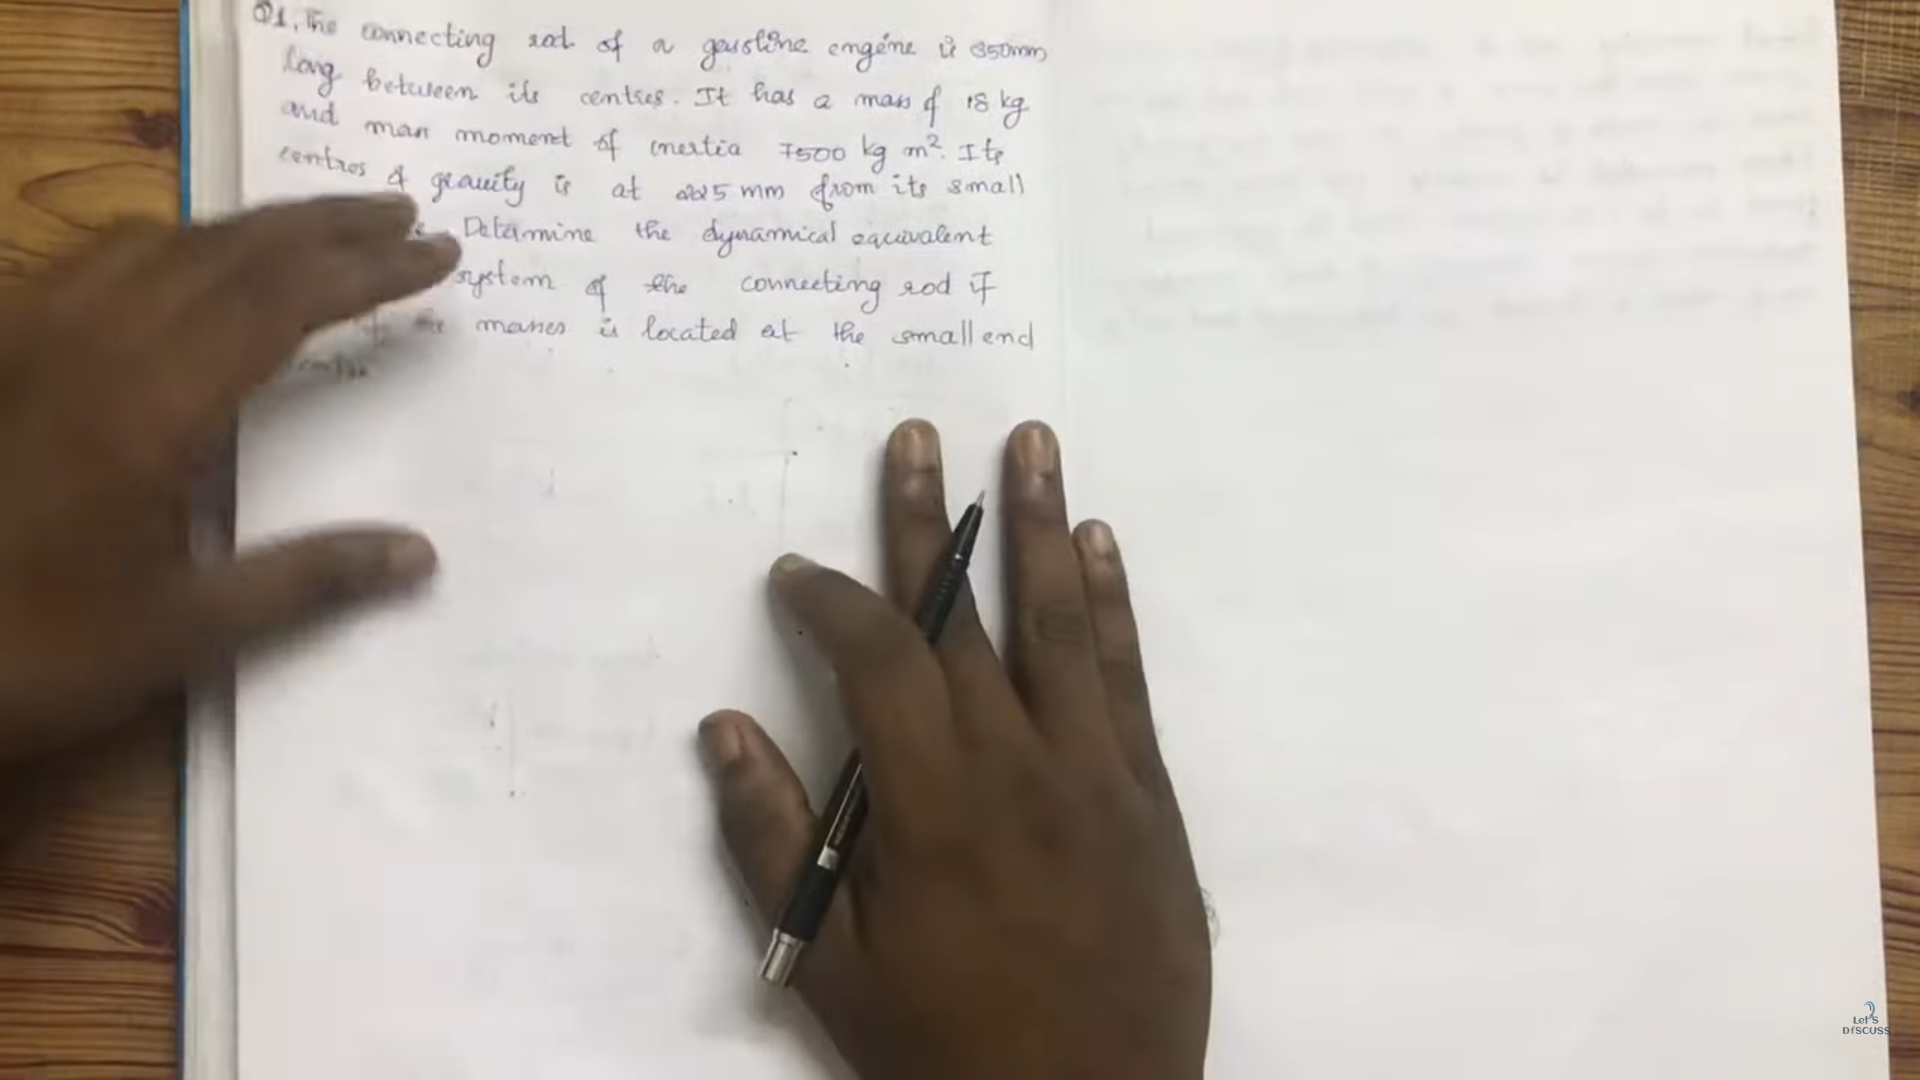 Q1. The connecting rod of a gasoline engine is 350mm
long between its centres. It has a mass of 18 kg
and mass moment of inertia 7500 kg m². Its
centres of gravity is at 225 mm from its small
Determine the dynamical equivalent
system of the connecting rod if
the masses is located at the small end
Let's
DISCUSS